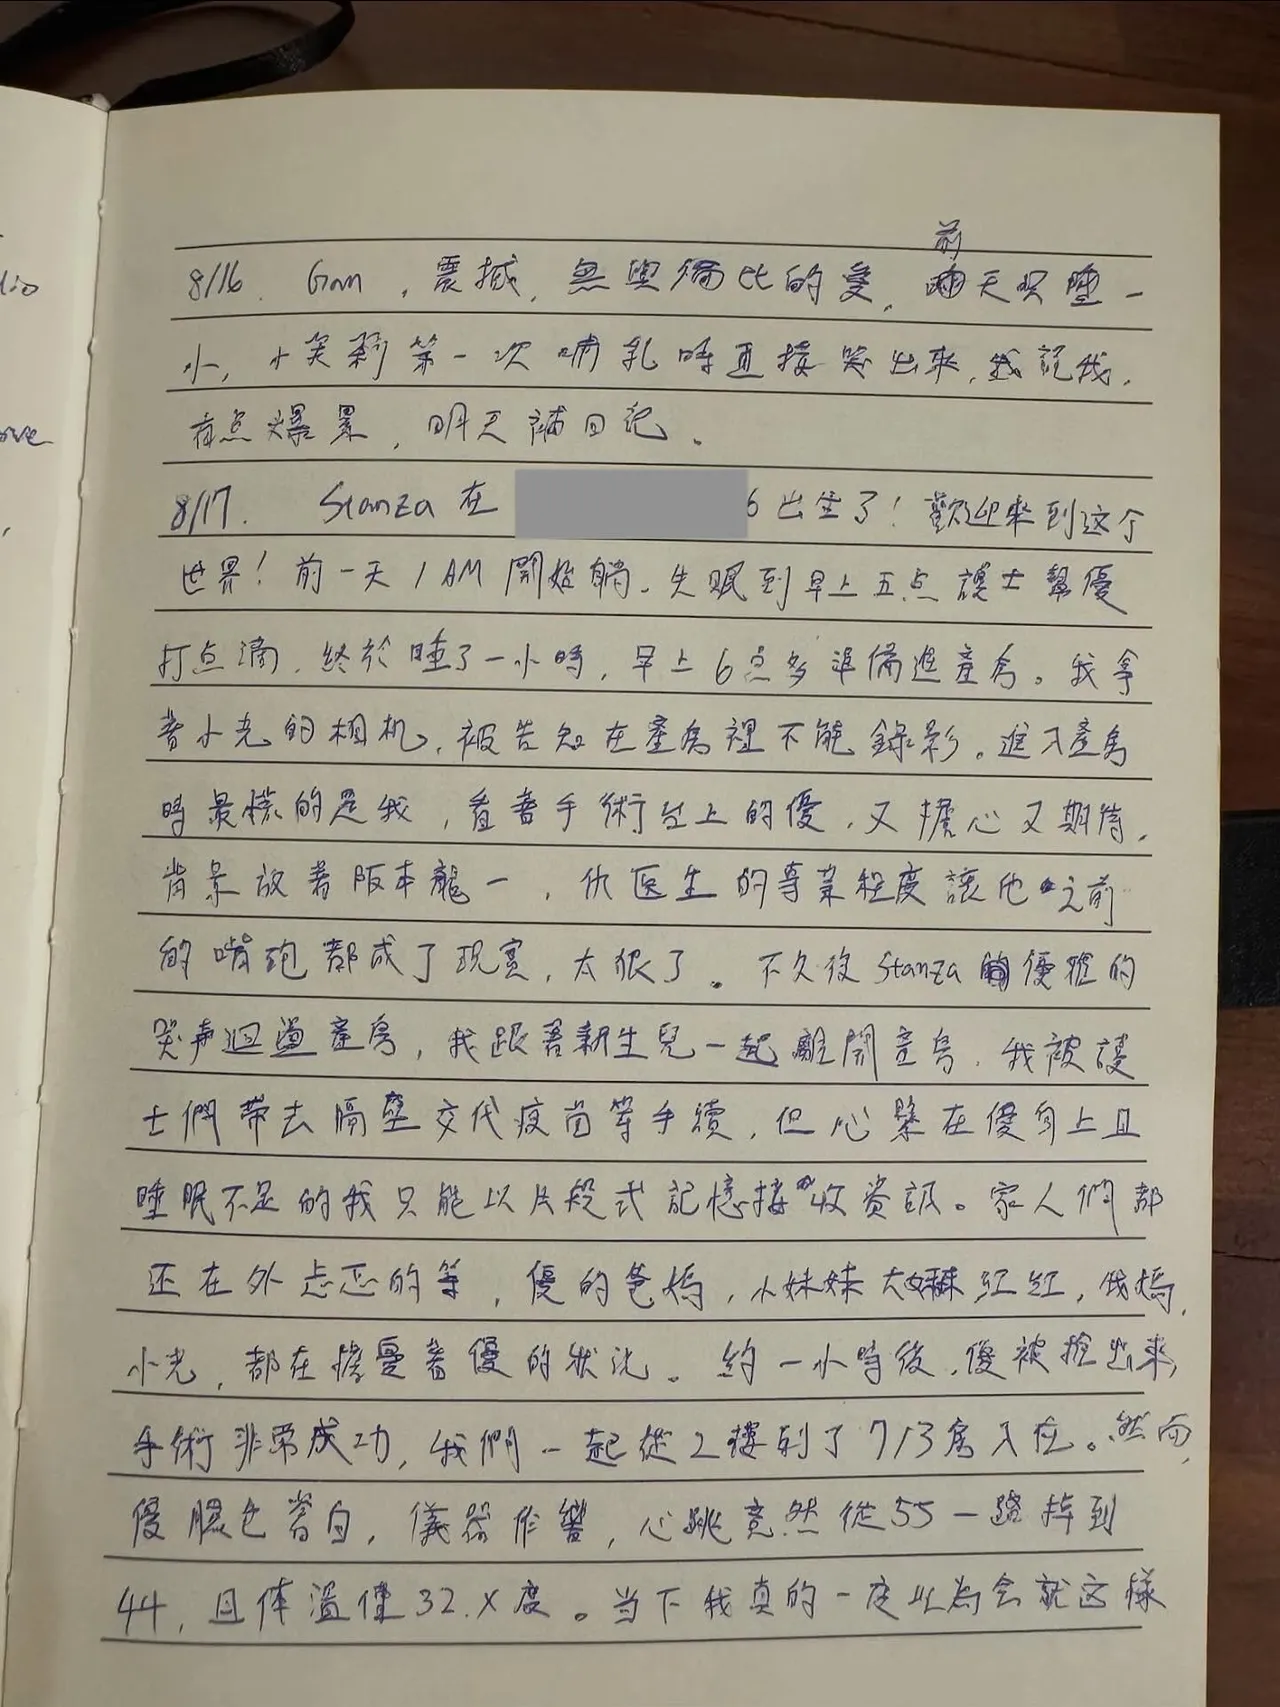 前
8/16. Gm，震撼，無與倫比的愛，天只睡一
小，小芙莉第一次哺乳時直接哭出來，我記我，
有点爆累，明天補日記。
8/17. Stanza 在 6 出生了！歡迎來到这个
世界！前一天 1 AM 開始躺。失眠到早上五点護士幫優
打点滴，終於睡了一小時，早上6点多準備進產房。我拿
着小光的相机，被告知在產房裡不能錄影。進入產房
時最慌的是我，看着手術台上的優，又擔心又期待，
背景放着阪本龍一，仇医生的專業程度讓他之前
的嘴砲都成了現實，太狠了。不久後Stanza 優雅的
哭声迴盪產房，我跟着新生兒一起離開產房，我被護
士們帶去隔壁交代疫苗等手續，但心繫在優身上且
睡眠不足的我只能以片段式記憶接收資訊。家人們都
还在外忐忑的等，優的爸媽，小妹妹大 红红，我媽，
小光，都在擔憂着優的狀況。約一小時後，優被推出來，
手術非常成功，我們一起從2樓到了713房入住。然而，
優臉色蒼白，儀器作響，心跳竟然從55一路掉到
44，且体溫僅32.X度。当下我真的一度以為会就这樣